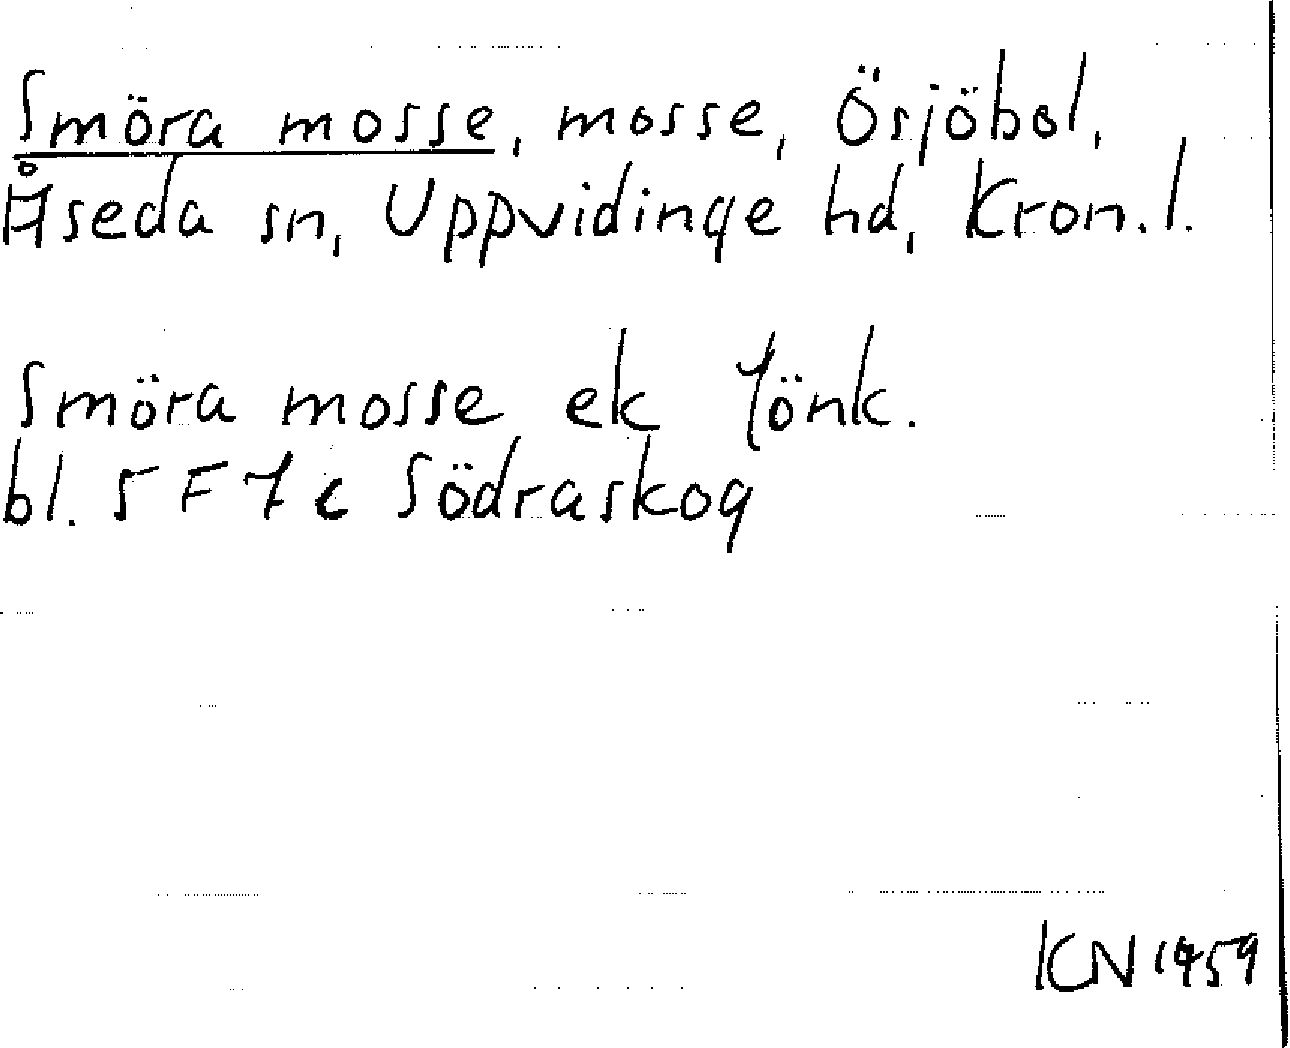 Smöra mosse, mosse, Ösjöbol,
Åseda sn, Uppvidinge hd, Kron. l.
Smöra mosse ek Jönk.
bl. 5 F 7 c Södraskog
KCN 1959